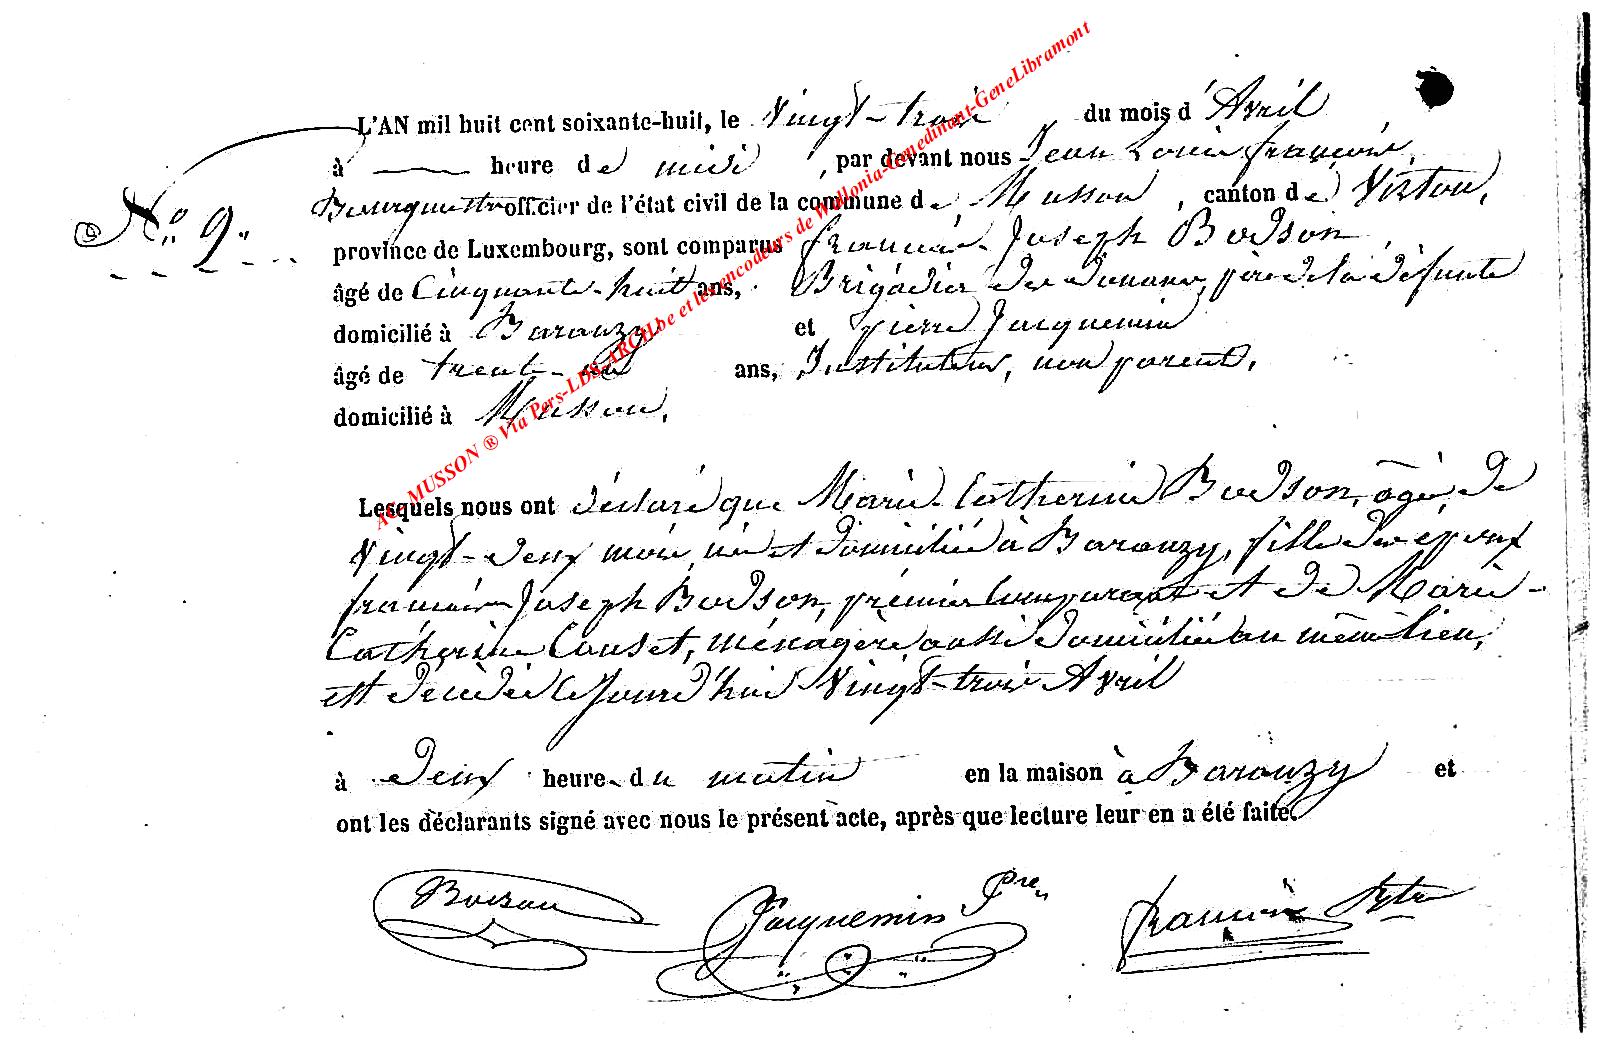 L'AN mil huit cent soixante-huit, le Vingt-trois du mois d'Avril
à heure de midi, par devant nous Jean Louis François,
Bourgmestre officier de l'état civil de la commune de Musson, canton de Virton,
N° 9.
province de Luxembourg, sont comparus François-Joseph Bodson
âgé de Cinquante-huit ans, Brigadier des douanes, père de la défunte
domicilié à Baranzy et pierre Jacquemin
âgé de trente-un ans, Instituteur, non parent,
domicilié à Musson.
AC. MUSSON ® Via Pers-LDS-ARCH.be et les encodeurs de Wallonia-Genedinant-GeneLibramont
Lesquels nous ont déclaré que Marie-Catherine Bodson, âgée de
Vingt-deux mois, née et domiciliée à Baranzy, fille des époux
françois-Joseph Bodson, prémier Comparant et de Marie-
Catherine Couset, ménagère aussi domiciliée au même lieu,
est décédée Cejourd'hui Vingt-trois Avril
à Deux heure du matin en la maison à Baranzy et
ont les déclarants signé avec nous le présent acte, après que lecture leur en a été faite.
Bodson Jacquemin Pre. François